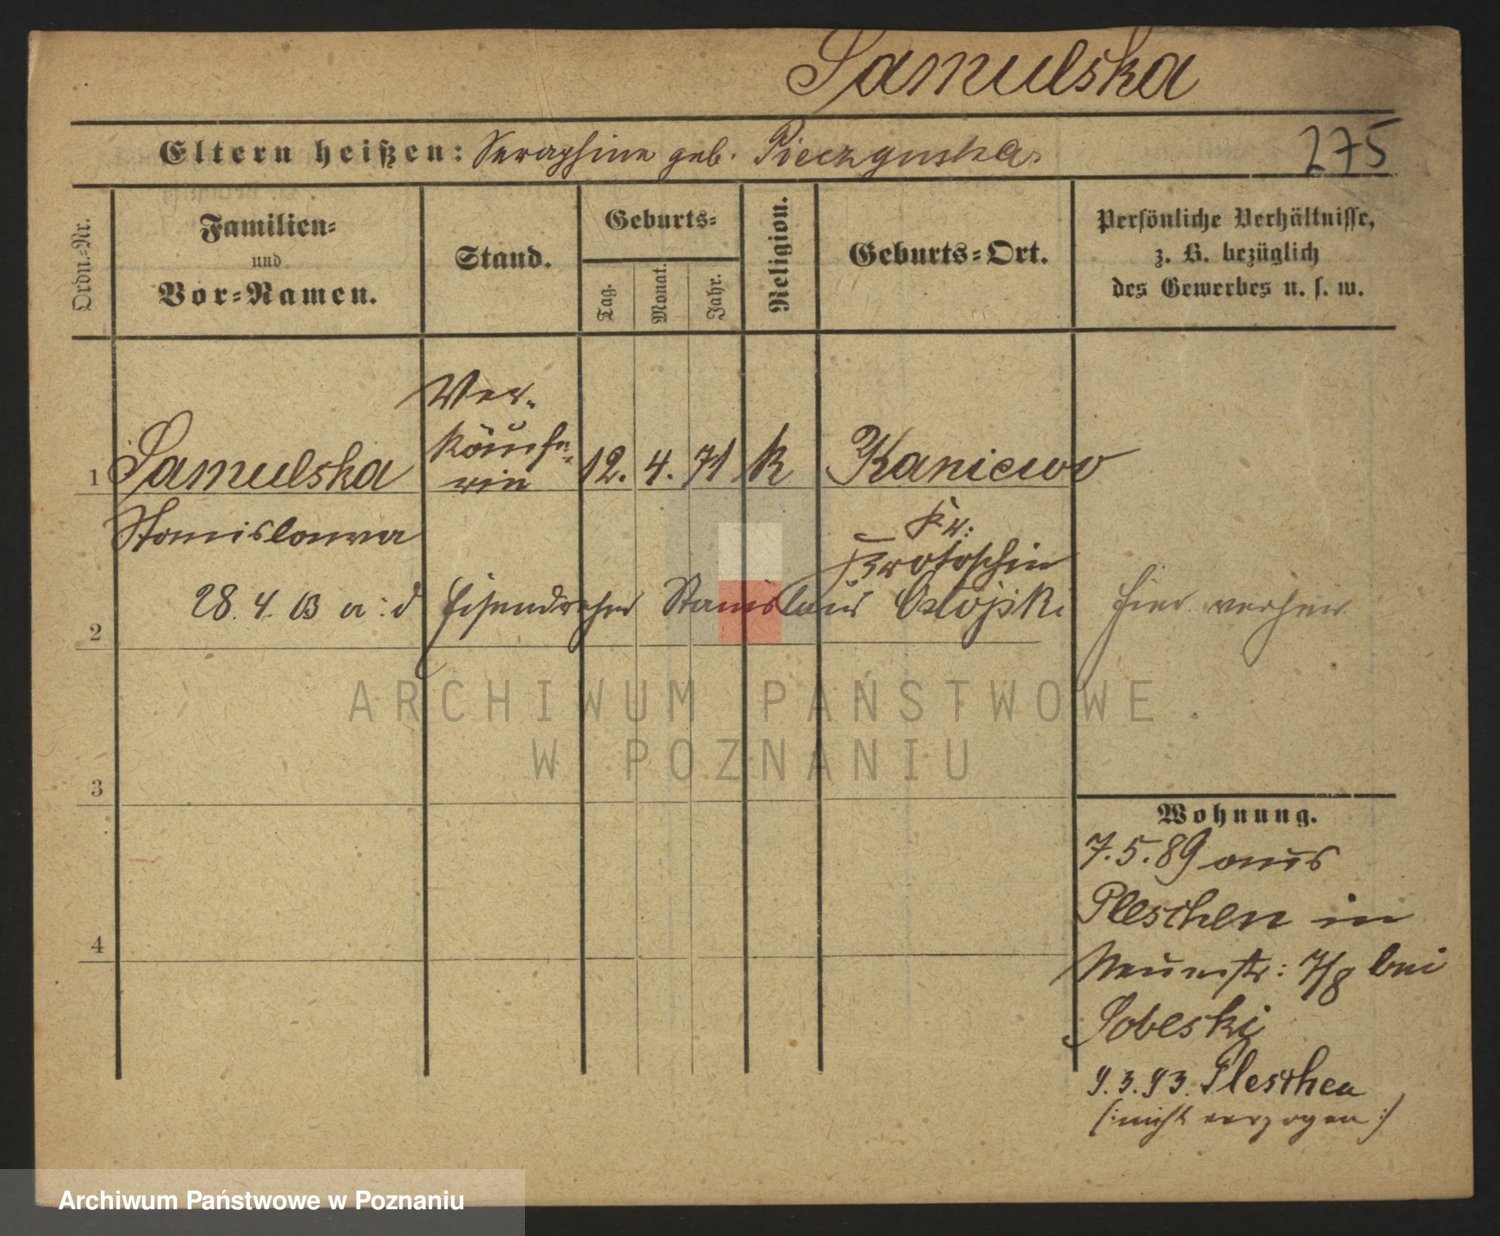 Samulska
Eltern heißen: Seraphine geb. Pieczynska.
275
Ordn.-Nr.
Familien-
und
Vor-Namen.
Stand.
Geburts-
Tag.
Monat.
Jahr.
Religion.
Geburts-Ort.
Persönliche Verhältnisse,
z. B. bezüglich
des Gewerbes u. s. w.
Ver-
käufe-
rin
1 Samulska 12. 4. 71 k Kaniewo
Stanislawa
Kr:
Krotoschin
28. 4. 93 a: d Eisendreher Stanislaus hier verheir
2
ARCHIWUM PAŃSTWOWE
W POZNANIU
3
Wohnung.
7.5.89 aus
Pleschen in
4
Neuestr: 7/8 bei
Sobeski
9.3.93. Pleschen
(: nicht verzogen :)
Archiwum Państwowe w Poznaniu